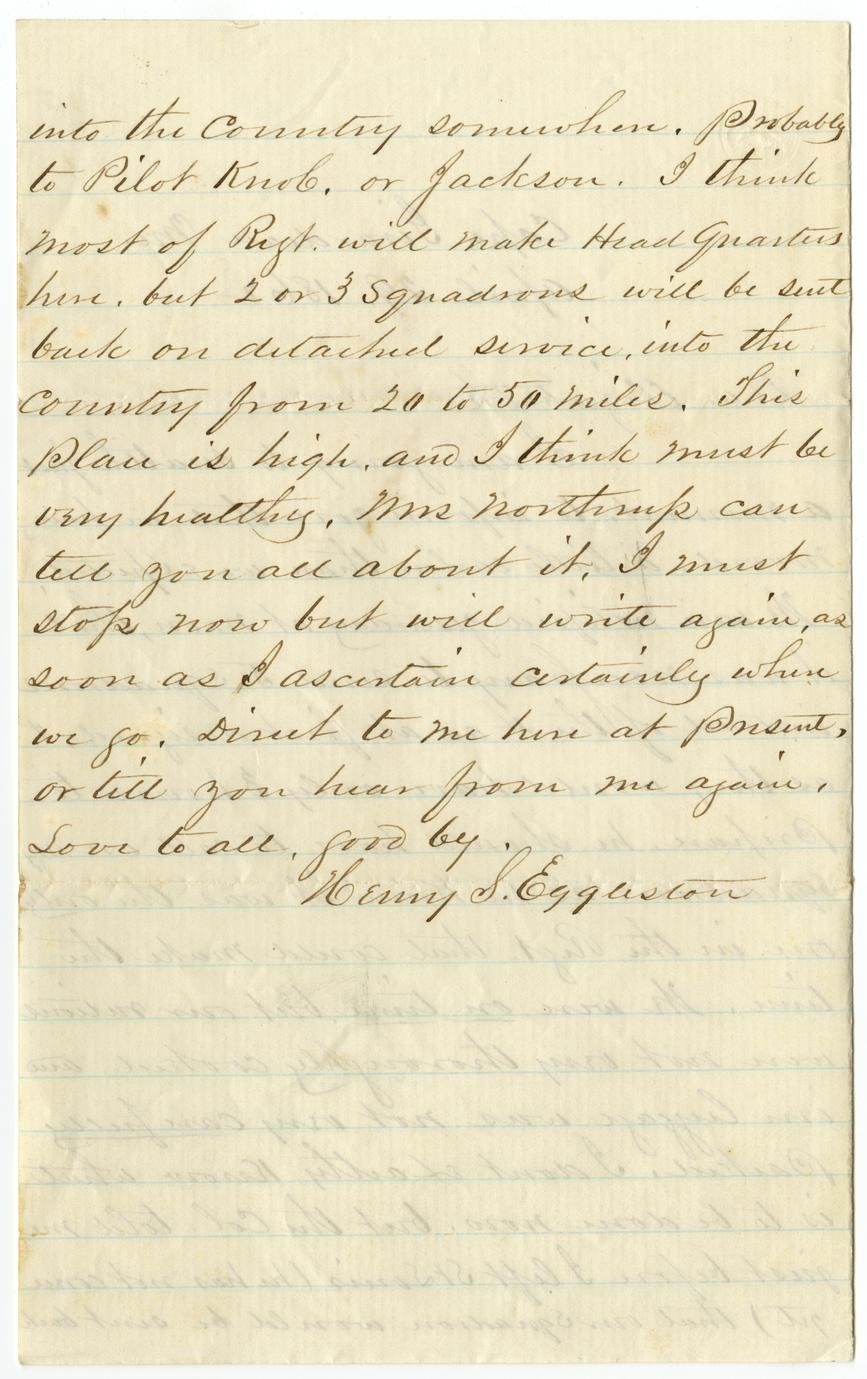 into the Country somewhere. Probably
to Pilot Knob, or Jackson. I think
most of Regt. will make Head Quarters
here, but 2 or 3 Squadrons will be sent
back on detached service, into the
Country from 20 to 50 miles. This
Place is high, and I think must be
very healthy. Mrs Northrup can
tell you all about it. I must
stop now but will write again, as
soon as I ascertain certainly where
we go. Direct to me here at Present,
or till you hear from me again.
Love to all, good by.
Henry S. Eggleston